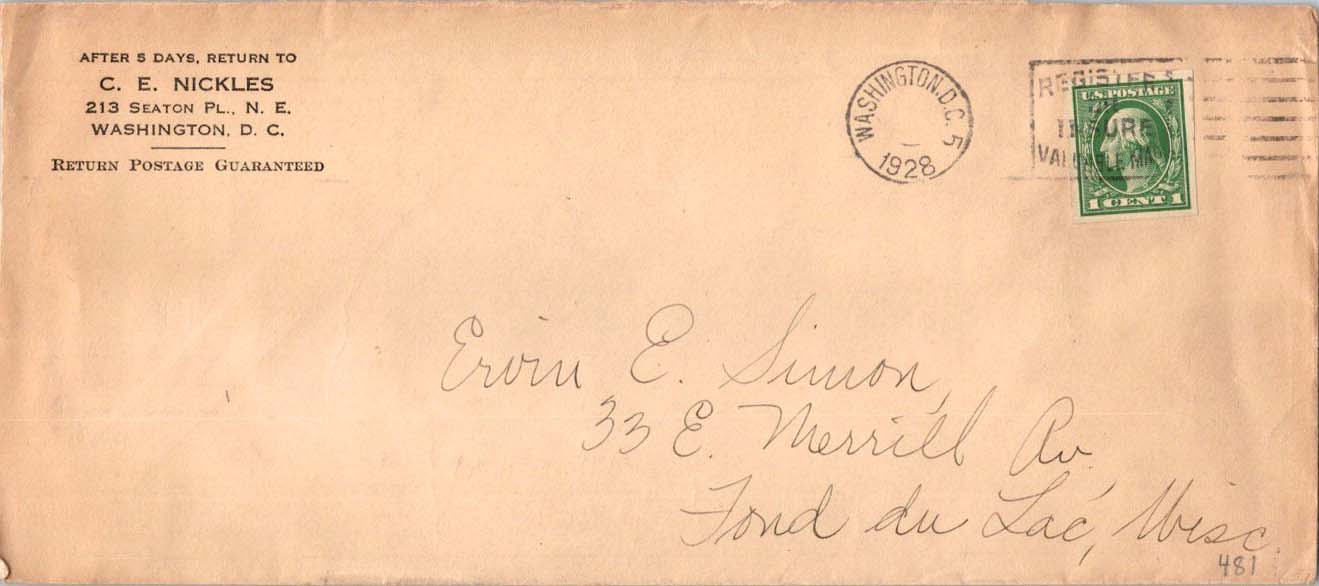 AFTER 5 DAYS, RETURN TO
C. E. NICKLES
213 SEATON PL., N. E.
WASHINGTON, D. C.
RETURN POSTAGE GUARANTEED
WASHINGTON, D.C. 5
1928
REGISTER
INSURE
VALUABLE MAIL
U.S. POSTAGE
1 CENT 1
Ervin E. Simon,
33 E. Merrill Av.
Fond du Lac, Wisc.
481